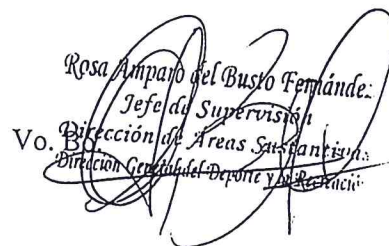 Rosa Amparo del Busto Fernánde.
Jefe de Supervisión
Vo. Bo.
Dirección de Áreas Sustantiva.
Dirección General del Deporte y la Recreació